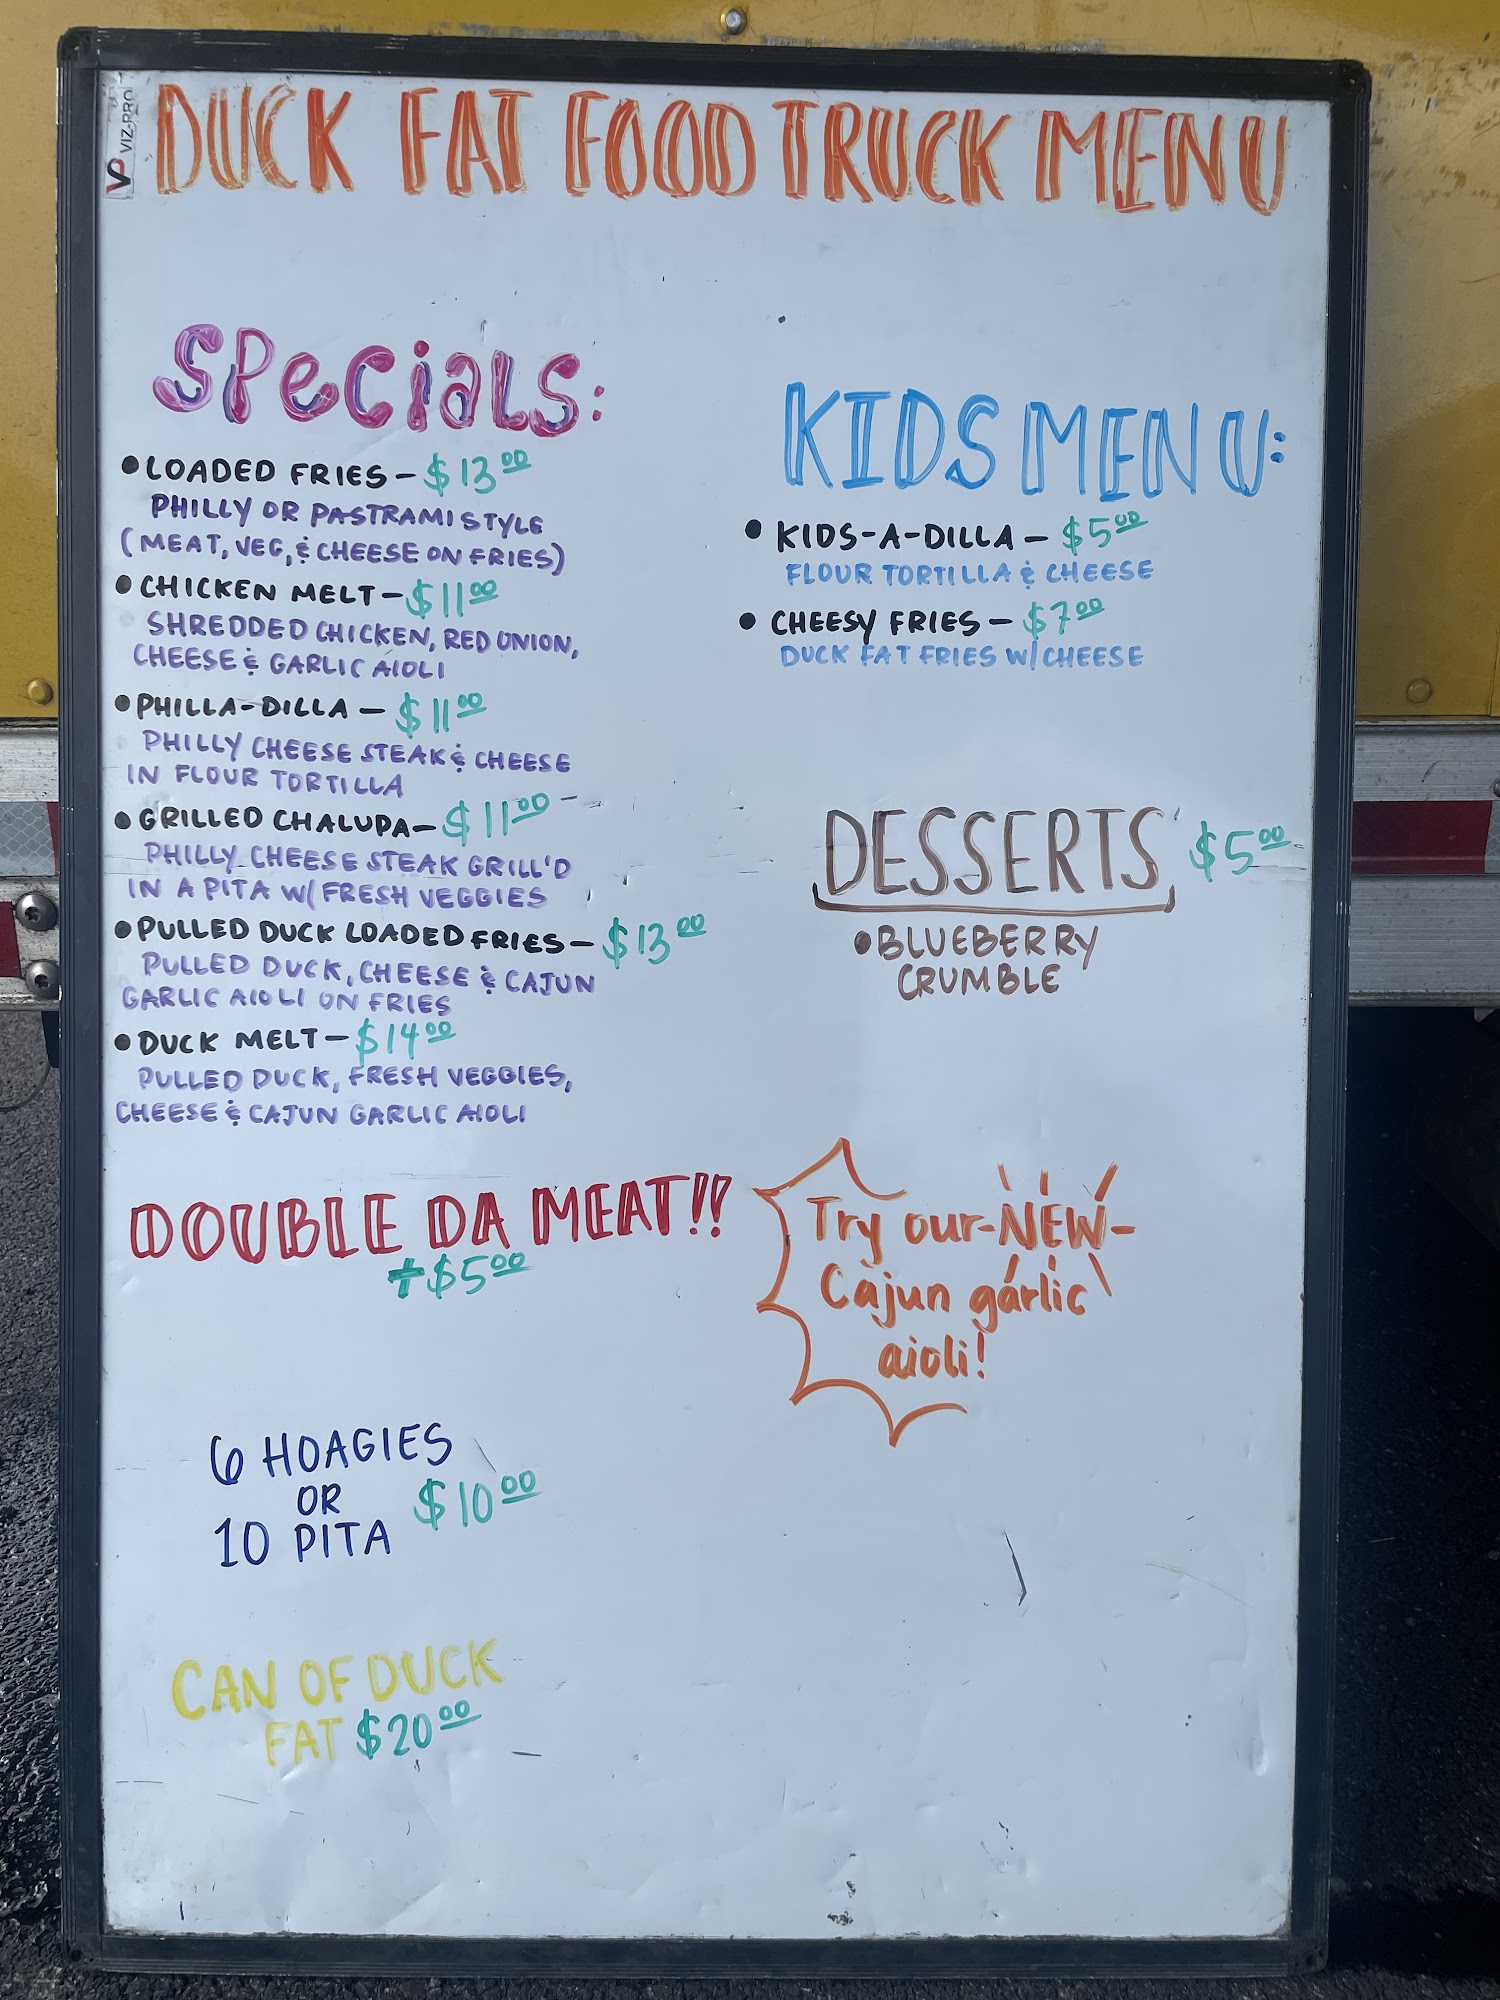 VP VIZ-PRO
DUCK FAT FOOD TRUCK MENU
SPeCiALS:
• LOADED FRIES – $13.00
PHILLY OR PASTRAMI STYLE
(MEAT, VEG, & CHEESE ON FRIES)
• CHICKEN MELT – $11.00
SHREDDED CHICKEN, RED ONION,
CHEESE & GARLIC AIOLI
• PHILLA-DILLA – $11.00
PHILLY CHEESE STEAK & CHEESE
IN FLOUR TORTILLA
• GRILLED CHALUPA – $11.00
PHILLY CHEESE STEAK GRILL'D
IN A PITA W/ FRESH VEGGIES
• PULLED DUCK LOADED FRIES – $13.00
PULLED DUCK, CHEESE & CAJUN
GARLIC AIOLI ON FRIES
• DUCK MELT – $14.00
PULLED DUCK, FRESH VEGGIES,
CHEESE & CAJUN GARLIC AIOLI
DOUBLE DA MEAT!!
+$5.00
6 HOAGIES
OR
10 PITA
$10.00
CAN OF DUCK
FAT $20.00
KIDS MENU:
• KIDS-A-DILLA – $5.00
FLOUR TORTILLA & CHEESE
• CHEESY FRIES – $7.00
DUCK FAT FRIES W/ CHEESE
DESSERTS $5.00
• BLUEBERRY
CRUMBLE
Try our -NEW-
Cajun garlic
aioli!